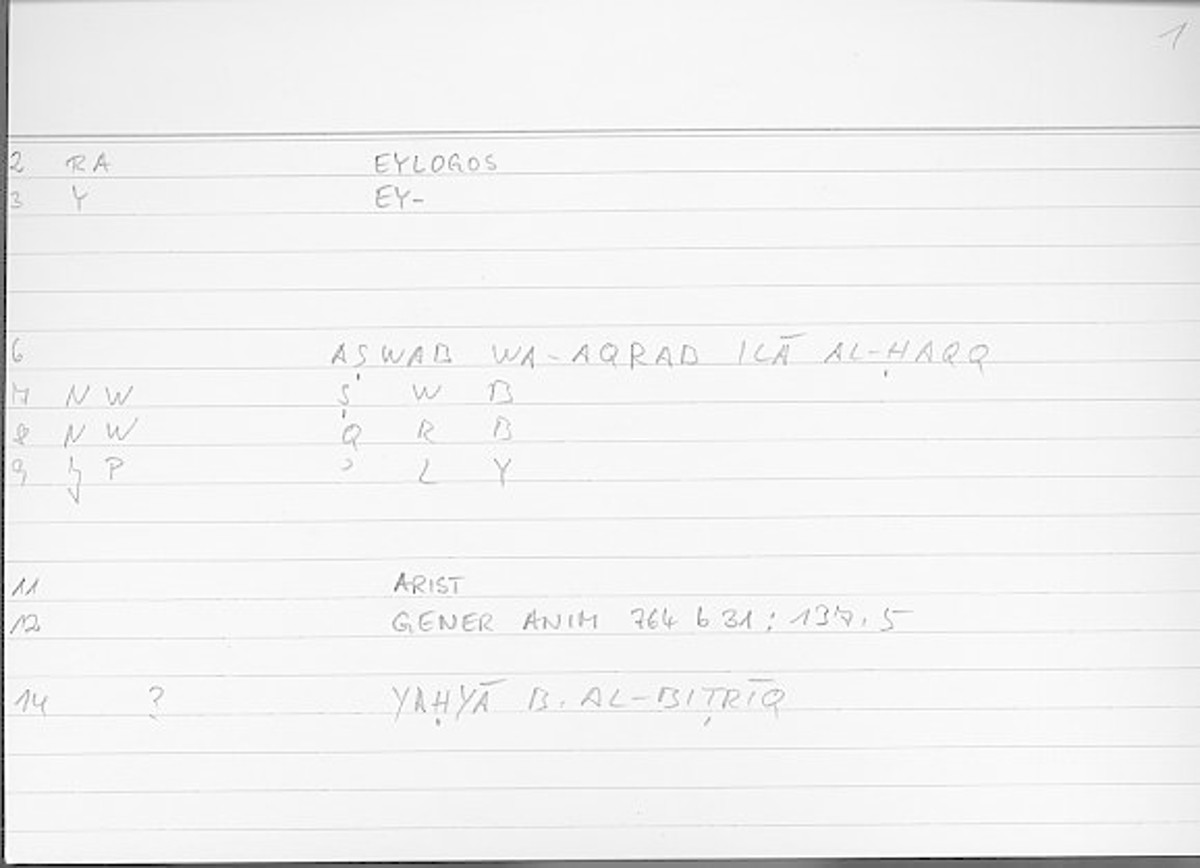 1
2 RA EYLOGOS
3 Y EY-
6 AṢWAB WA-AQRAB ILĀ AL-ḤAQQ
7 NW Ṣ W B
8 NW Q R B
9 P ʾ L Y
11 ARIST
12 GENER ANIM 764 b 31 : 137.5
14 ? YAḤYĀ B. AL-BIṬRĪQ